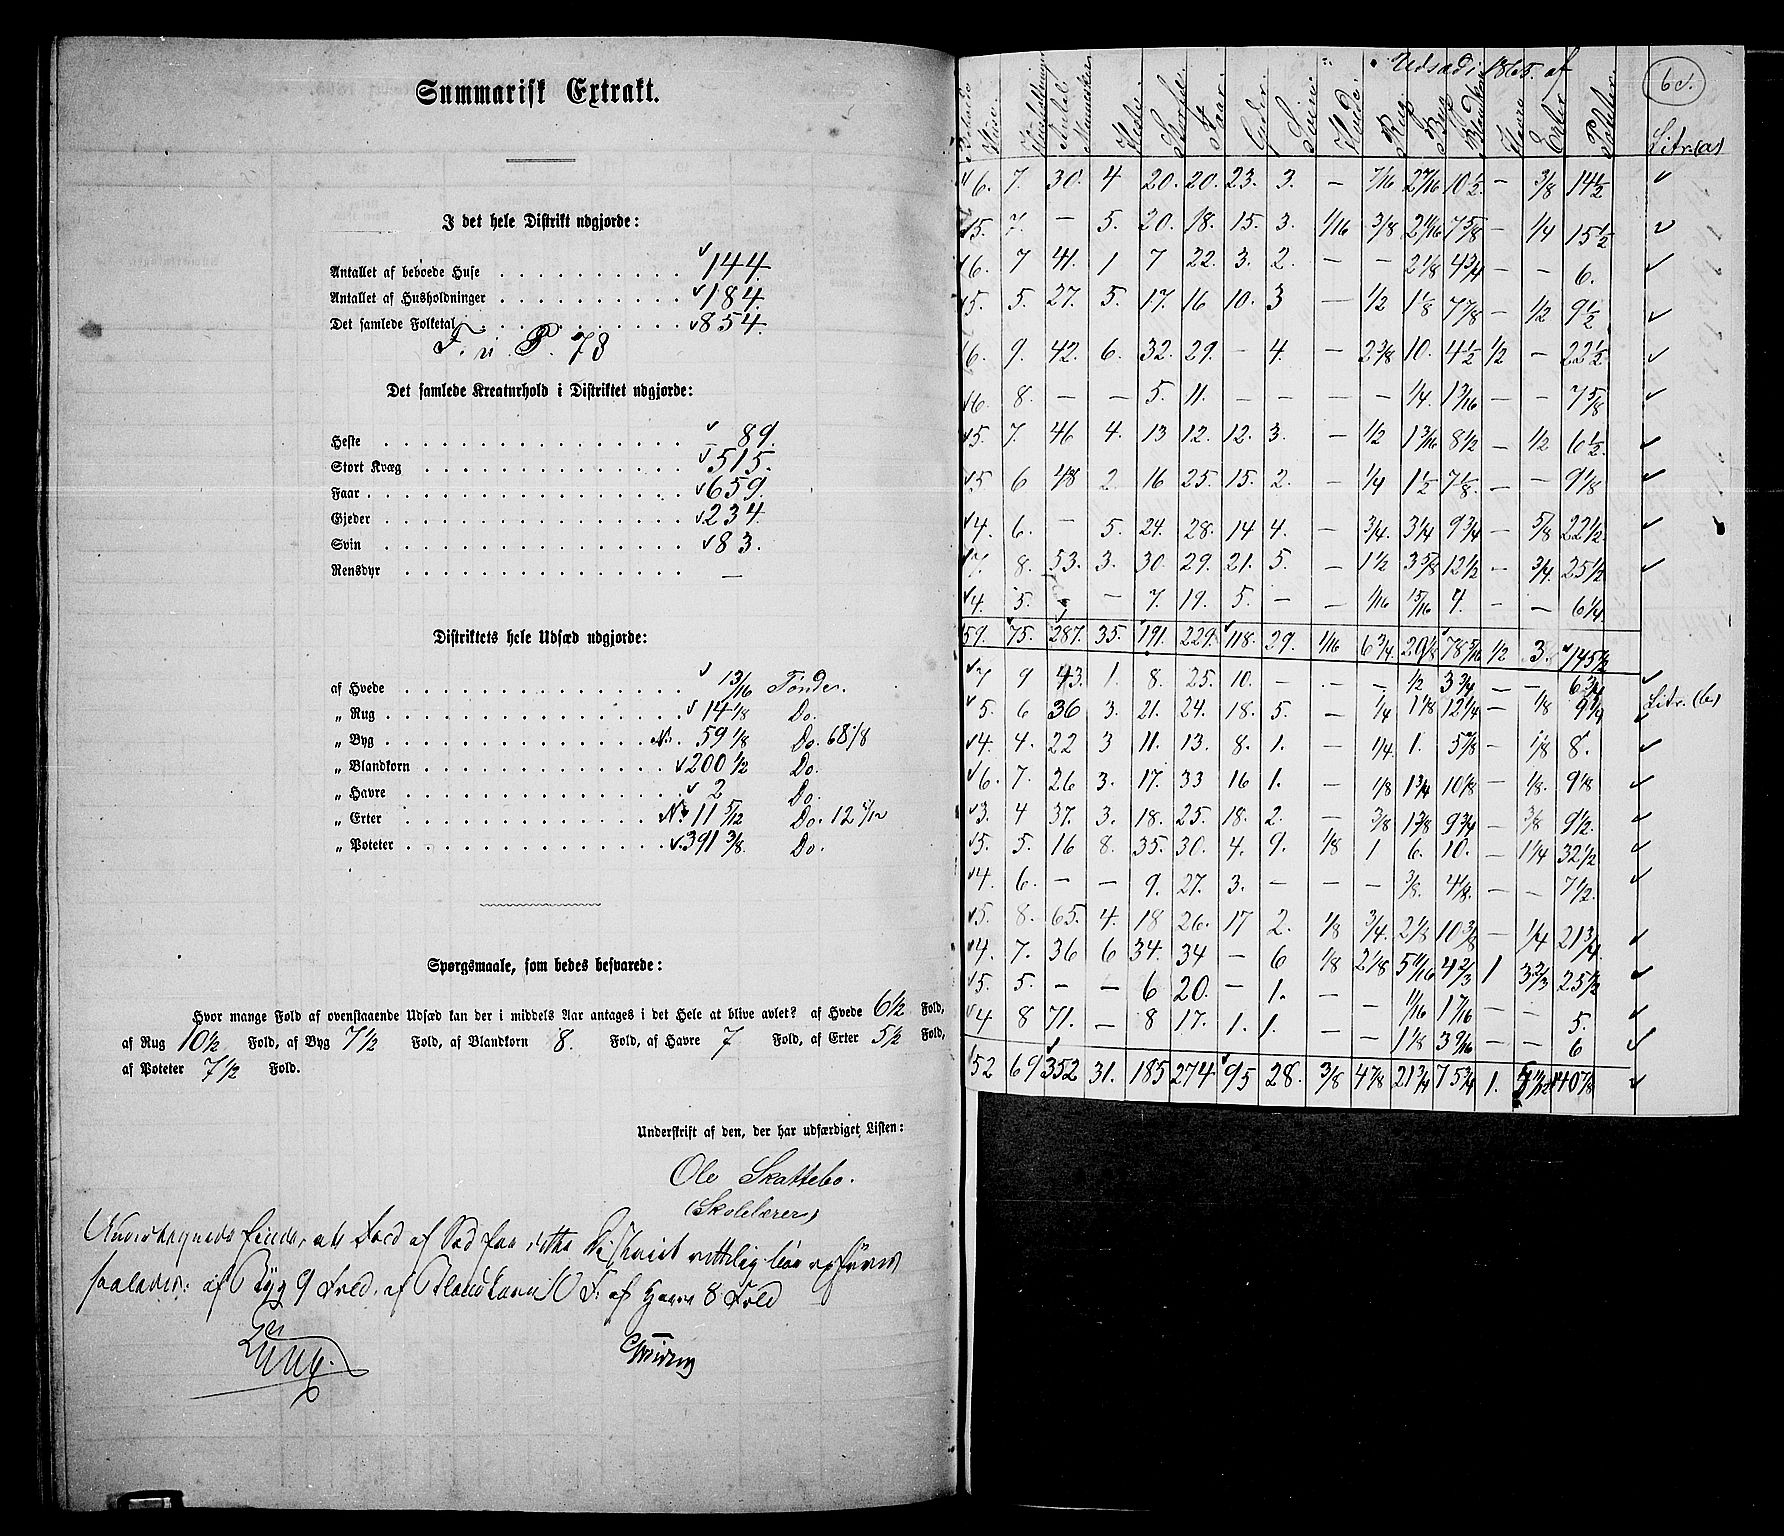 Summarisk Extrakt.
I det hele Distrikt udgjorde:
Antallet af beboede Huse . . . . . . . . . . 144
Antallet af Husholdninger . . . . . . . . . . 184.
Det samlede Folketal . . . . . . . . . . 854.
F. n. P. 78
Det samlede Kreaturhold i Distriktet udgjorde:
Heste . . . . . . . . . . 89.
Stort Kvæg . . . . . . . . . . 515.
Faar . . . . . . . . . . 659.
Gjeder . . . . . . . . . . 234.
Svin . . . . . . . . . . 83.
Rensdyr . . . . . . . . . . —
Distriktets hele Udsæd udgjorde:
af Hvede . . . . . . . . . . 13/16 Tönder.
„ Rug . . . . . . . . . . 14 1/8 Do.
„ Byg . . . . . . . . . . 59 1/8 Do. 68 1/8
„ Blandkorn . . . . . . . . . . 200 1/2 Do.
„ Havre . . . . . . . . . . 2 Do.
„ Erter . . . . . . . . . . 11 5/12 Do. 12 5/12
„ Poteter . . . . . . . . . . 391 3/8. Do.
Spørgsmaale, som bedes besvarede:
Hvor mange Fold af ovenstaaende Udsæd kan der i middels Aar antages i det Hele at blive avlet? af Hvede 6 1/2 Fold,
af Rug 10 1/2 Fold, af Byg 7 1/2 Fold, af Blandkorn 8. Fold, af Havre 7 Fold, af Erter 5 1/2 Fold,
af Poteter 7 1/2 Fold.
Underskrift af den, der har udfærdiget Listen:
Ole Skattebo.
(Skolelærer)
Undertegnede finder, at Fold af Sæd for dette Distrikt rettelig bör opföres
saaledes: af Byg 9 Fold, af Blandkorn 10 F. af Havre 8 Fold
Udsæd i 1865. af
Beboede Huse. Husholdninger Antal Mennesker Heste. Storfæ. Faar. Gjeder. Sviin. Hvede. Rug. Byg. Blandkorn Havre Erter Poteter.
Litr. (a)
6. 7. 30. 4 20. 20. 23. 3. — 7/16 2 7/16 10 1/2. — 3/8 14 1/2
5. 7. — 5. 20. 18. 15. 3. 1/16 3/8 2 1/16 7 5/8 — 1/4 15 1/2
6. 7 41. 1 7 22. 3. 2. — — 2 1/8 4 3/4 — — 6.
5. 5. 27. 5. 17. 16 10. 3 — 1/2 1 1/8 7 7/8 — 1/2 9 1/2
6. 9. 42. 6. 32. 29. — 4. — 2 3/8 10. 4 1/2 1/2 — 22 1/2
6. 8. — — 5. 11. — — — — 1/4. 1 3/16 — — 7 5/8
5. 7. 46 4. 13 12. 12. 3. — 1/2 1 3/16 8 1/2 — 1/2 6 1/2.
5 6 48 2. 16 25. 15. 2. — 1/4 1 1/2 7 1/8. — — 9 1/8
4. 6. — 5. 24. 28. 14 4. — 3/4. 3 1/4 9 3/4 — 5/8 22 1/2.
7. 8. 53. 3. 30. 29. 21. 5. — 1 1/2 3 5/8 12 1/2 — 3/4. 25 1/2
4. 5. — 7. 19. 5. — — 1/16 15/16 4. — — 6 1/4.
59. 75. 287. 35. 191. 229. 118. 29. 1/16 6 3/4. 29 1/8 78 5/16 1/2 3. 145 1/2
7 9 43. 1. 8. 25. 10. — — — 1/2 3 3/4 — — 6 3/4
Litr. (b)
5. 6 36 3. 21. 24. 18. 5. — 1/4 1 1/8 12 1/4 — 1/8 9 1/4
4. 4. 22 3 11. 13. 8. 1. — 1/4. 1. 5 7/8 — 1/8 8.
6. 7. 26 3. 17. 33 16 1. — 1/8 1 3/4 10 1/8 — 1/8. 9 1/8
3. 4 37. 3. 18. 25. 18. 2. — 3/8 1 3/8 9 3/4 — 3/8 9 1/2.
5. 5. 16 8. 35. 30. 4. 9. 1/8 1 6. 10. — 1 1/4 32 1/2
4. 6. — — 9. 27. 3. — — — 3/8. 4 1/8. — — 7 1/2.
5. 8. 65. 4. 18 26. 17 2. 1/8 3/4. 2 1/8 10 3/8 — 1/4 21 3/4
4. 7. 36 6 34. 34 — 6 1/8 2 1/8 5 11/16 4 2/3 1 3 2/3 25 1/2
5. 5. — — 6 20. — 1. — — 11/16 1 7/16 — — 5.
4 8 71. — 8 17. 1. 1. — — 1 1/8 3 9/16 — — 6
52 69 352 31. 185 274 95 28. 3/8 4 7/8 21 3/4 75 3/4 1. 140 7/8